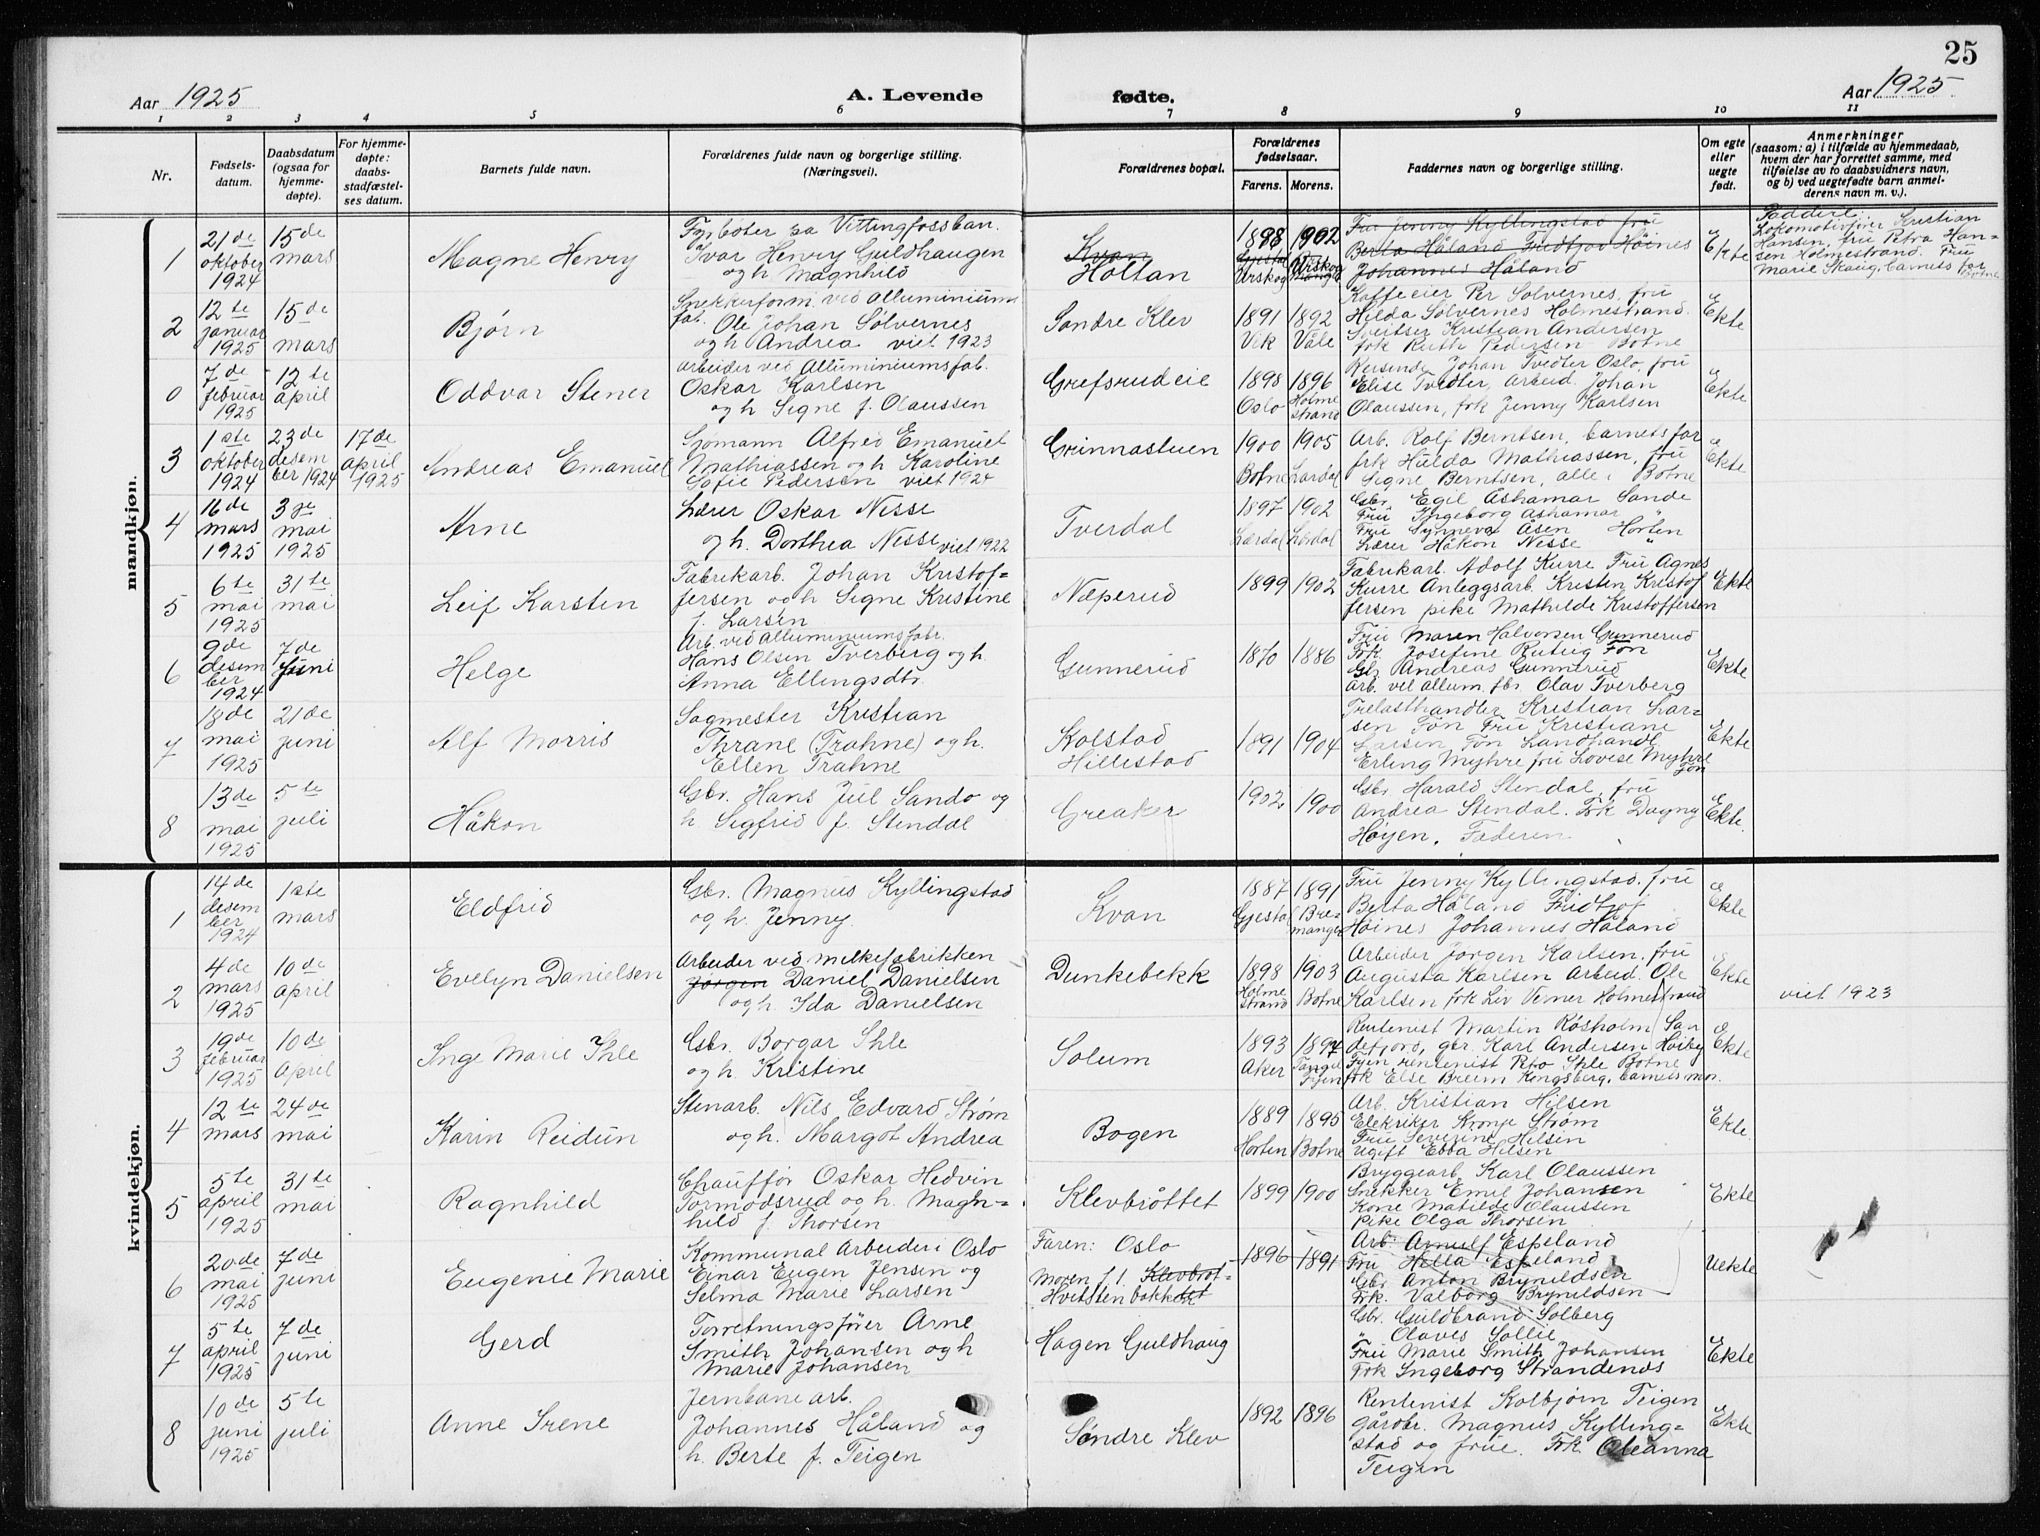 25
Aar 1925
A. Levende
fødte.
Aar 1925.
1 2 3 4 5 6 7 8 9 10 11
Nr.
Fødsels-
datum.
Daabsdatum
(ogsaa for
hjemme-
døpte).
For hjemme-
døpte:
daabs-
stadfæstel-
ses datum.
Barnets fulde navn.
Forældrenes fulde navn og borgerlige stilling.
(Næringsvei).
Forældrenes bopæl.
Forældrenes
fødselsaar.
Farens. Morens.
Faddernes navn og borgerlige stilling.
Om egte
eller
uegte
født.
Anmerkninger
(saasom: a) i tilfælde av hjemmedaab,
hvem der har forrettet samme, med
tilføielse av to daabsvidners navn,
og b) ved uegtefødte barn anmel-
derens navn m. v.).
mandkjøn.
1
21de
oktober
1924
15de
mars
Magne Henry
Fyrbøter pa Vittingfossban.
Ivar Henry Guldhaugen
og h Magnhild
Kvan
Holtan
1898 1902
Urskog Urskog
Fru Jenny Kyllingstad fru
Berta Håland Fridtjov Høines
Johannes Håland
Ekte
Faddere:
Lokomotivfører Kristian
Hansen, fru Petra Han=
sen Holmestrand. Fru
Marie Skaug, barnets far
Botne
2
12te
januar
1925
15de
mars
Bjørn
Snekkerform. ved Alluminiums
fab. Ole Johan Sølvernes
og h Andrea viet 1923
Søndre Klev
1891 1892
Vik Våle
Kaffeeier Per Sølvernes, fru
Hilda Sølvernes Holmestrand.
Sveitser Kristian Andersen
frk Ruth Pedersen Botne
Ekte
0
7de
februar
1925
12te
april
Oddvar Stener
arbeider ved Alluminiumsfab.
Oskar Karlsen
og h Signe f. Olaussen
Grefsrudeie
1898 1896
Oslo Holme
strand
Reisende Johan Tvedter Oslo, fru
Elise Tvedter, arbeid. Johan
Olaussen, frk Jenny Karlsen
Ekte
3
1ste
oktober
1924
23de
desem
ber 1924
17de
april
1925
Andreas Emanuel
Sjømann Alfred Emanuel
Mathiassen og h Karoline
Sofie Pedersen viet 1924
Grinnastuen
1900 1905
Botne Lardal
Arb. Rolf Berntsen, barnets far
frk Hulda Mathiassen, fru
Signe Berntsen, alle i Botne
Ekte
4
16de
mars
1925
3je
mai
1925
Arne
Lærer Oskar Nesse
og h. Dorthea Nesse viet 1922
Tverdal
1897 1902
Lærdal Lærdal
Gbr. Egil Åshamar Sande
Fru Ingeborg Åshamar "
Fru Synneva Åsen Horten
Lærer Håkon Nesse "
5
6te
mai
1925
31te
mai
Leif Karsten
Fabrikarb. Johan Kristof=
fersen og h Signe Kristine
f. Larsen
Næperud
1899 1902
Fabrikarb. Adolf Kurre Fru Agnes
Kurre Anleggsarb. Kristen Kristof
fersen pike Mathilde Kristoffersen
Ekte
6
9de
desem
ber
1924
7de
juni
Helge
Arb. ved Alluminiumsfabr.
Hans Olsen Tverberg og h.
Anna Ellingsdtr.
Gunnerud
1870 1886
Fru Maren Halvorsen Gunnerud
Frk. Josefine Rutug Føn
Gbr. Andreas Gunnerud
Arb. vel allum. fbr. Olav Tverberg
Ekte
7
18de
mai
1925
21de
juni
Alf Morris
Sagmester Kristian
Thrane (Trahne) og h.
Ellen Trahne
Kolstad
Hillestad
1891 1904
Trelasthandler Kristian Lar=
sen Føn Fru Kristiane
Larsen Føn Landhandl.
Erling Myhre fru Lovise Myhre
Føn
Ekte
8
13de
mai
1925
5te
juli
Håkon
Gbr. Hans Jul Sando og
h Sigfrid f. Stendal
Greaker
1902 1900
Gbr Harald Stendal, fru
Andrea Stendal. Frk Dagny
Høyen. Faderen
Ekte.
kvindekjøn.
1
14de
desem
ber
1924
1ste
mars
Eldfrid
Gbr. Magnus Kyllingstad
og h. Jenny.
Kvan
1887 1891
Gjestal Bre-
manger
Fru Jenny Kyllingstad, fru
Berta Håland Fridtjof
Høines Johannes Håland
Ekte
2
4de
mars
1925
10de
april
Evelyn Danielsen
Arbeider ved melkefabrikken
Jørgen Daniel Danielsen
og h. Ida Danielsen
Dunkebekk
1898 1903
Holme
strand Botne
Arbeider Jørgen Karlsen, fru
Augusta Karlsen Arbeid. Ole
Karlsen, frk Liv Verner Holmestrand
Ekte
viet 1923
3
19de
februar
1925
10de
april
Inge Marie Ihle
Gbr. Borgar Ihle
og h. Kristine
Solum
1893 1897
Aker
Fyen
Rentenist Martin Råsholm San
defjord, gbr. Karl Andersen Høiby
Fyen, rentenist Pto Ihle Botne
frk Else Breim Kongsberg, barnets mor.
Ekte
4
12te
mars
24de
mai
Karin Reidun
Stenarb. Nils Edvard Strøm
og h. Margot Andrea
Bogen
1889 1895
Horten Botne
Arb. Kristian Hilsen
Elekriker Kronje Strøm
Fru Severine Hilsen
ugift Ebba Hilsen
Ekte.
5
5te
april
1925
31te
mai
Ragnhild
Chauffør Oskar Hedvin
Tormodsrud og h. Magn=
hild f. Thorsen
Klevbråttet
1899 1900
Bryggearb Karl Olaussen
Snekker Emil Johansen
Kone Matilde Olaussen
pike Olga Thorsen
Ekte
6
20de
mai
1925
7de
juni
Eugenie Marie
Kommunal Arbeider i Oslo
Einar Eugen Jensen og
Selma Marie Larsen
Faren: Oslo
Moren f. 1. Klevbrot-
Hvitstenbakk tet
1896 1891
Arb. Arnulf Espeland
Fru Hilla Espeland
Gbr Anton Brynildsen
Frk. Valborg Brynildsen
Uekte
7
5te
april
1925
7de
juni
Gerd
Forretningsfører Arne
Smith Johansen og h
Marie Johansen
Hagen Guldhaug
Gbr. Guldbrand Solberg
" Olaves Sollie
Fru Marie Smith Johansen
Frk Ingeborg Strandenes
Ekte
8
10de
juni
1925
5te
juli
Anne Irene
Jernbanearb.
Johannes Håland og
h. Berte f. Teigen
Søndre Klev
1892 1896
Rentenist Kolbjørn Teigen
gårdbr. Magnus Kylling=
stad og frue. Frk Oleanna
Teigen
Ekte